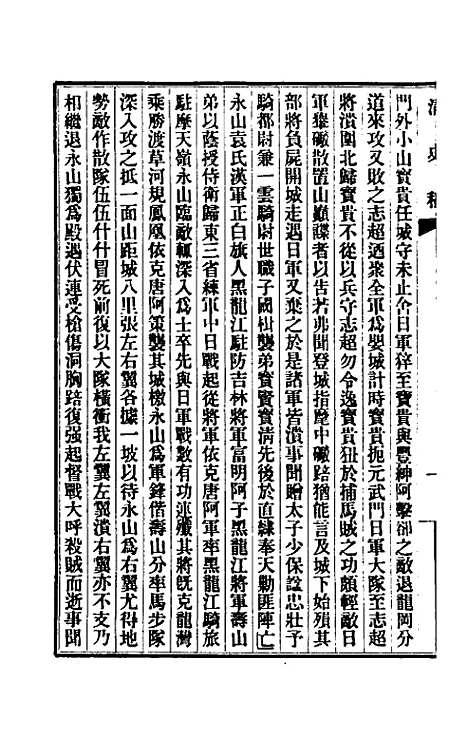 清史稿
一
門外小山寶貴任城守未止舍日軍猝至寶貴與豐紳阿擊卻之敵退龍岡分
道來攻又敗之志超迺聚全軍為嬰城計時寶貴扼元武門日軍大隊至志超
將潰圍北歸寶貴不從以兵守志超勿令逸寶貴狃於捕馬賊之功頗輕敵日
軍獲礮散置山巔諜者以告若弗聞登城指麾中礮踣猶能言及城下始殞其
部將負屍開城走遇日軍又棄之於是諸軍皆潰事聞贈太子少保諡忠壯予
騎都尉兼一雲騎尉世職子國栻襲弟寶賢寶清先後於直隸奉天勦匪陣亡
永山袁氏漢軍正白旗人黑龍江駐防吉林將軍富明阿子黑龍江將軍壽山
弟以蔭授侍衛歸東三省練軍中日戰起從將軍依克唐阿軍率黑龍江騎旅
駐摩天嶺永山臨敵輒深入為士卒先與日軍戰數有功連殲其將旣克龍灣
乘勝渡草河規鳳凰依克唐阿策襲其城檄永山為軍鋒偕壽山分率馬步隊
深入攻之抵一面山距城八里張左右翼各據一坡以待永山為右翼尤得地
勢敵作散隊伍伍什什冒死前復以大隊橫衝我左翼左翼潰右翼亦不支乃
相繼退永山獨為殿遇伏連受槍傷洞胸踣復強起督戰大呼殺賊而逝事聞